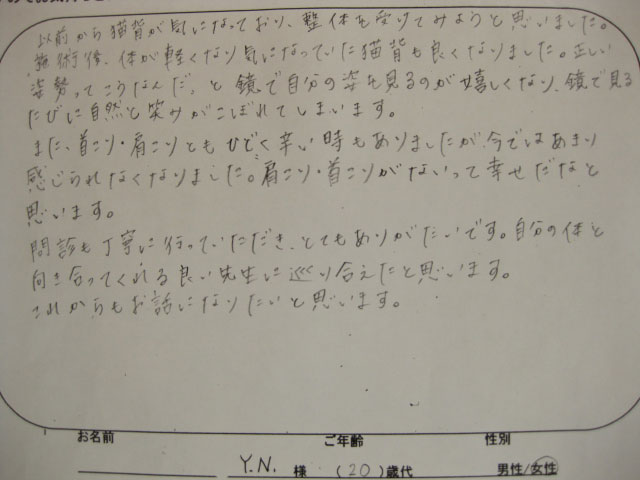 以前から猫背が気になっており、整体を受けてみようと思いました。
施術後、体が軽くなり気になっていた猫背も良くなりました。正しい
姿勢ってこうなんだ、と鏡で自分の姿を見るのが嬉しくなり、鏡で見る
たびに自然と笑みがこぼれてしまいます。
また、首こり・肩こりともひどく辛い時もありましたが、今ではあまり
感じられなくなりました。肩こり・首こりがないって幸せだなと
思います。
問診も丁寧に行っていただき、とてもありがたいです。自分の体と
向き合ってくれる良い先生に巡り合えたと思います。
これからもお話になりたいと思います。
お名前 ご年齢 性別
Y.N. 様 (20)歳代 男性/女性